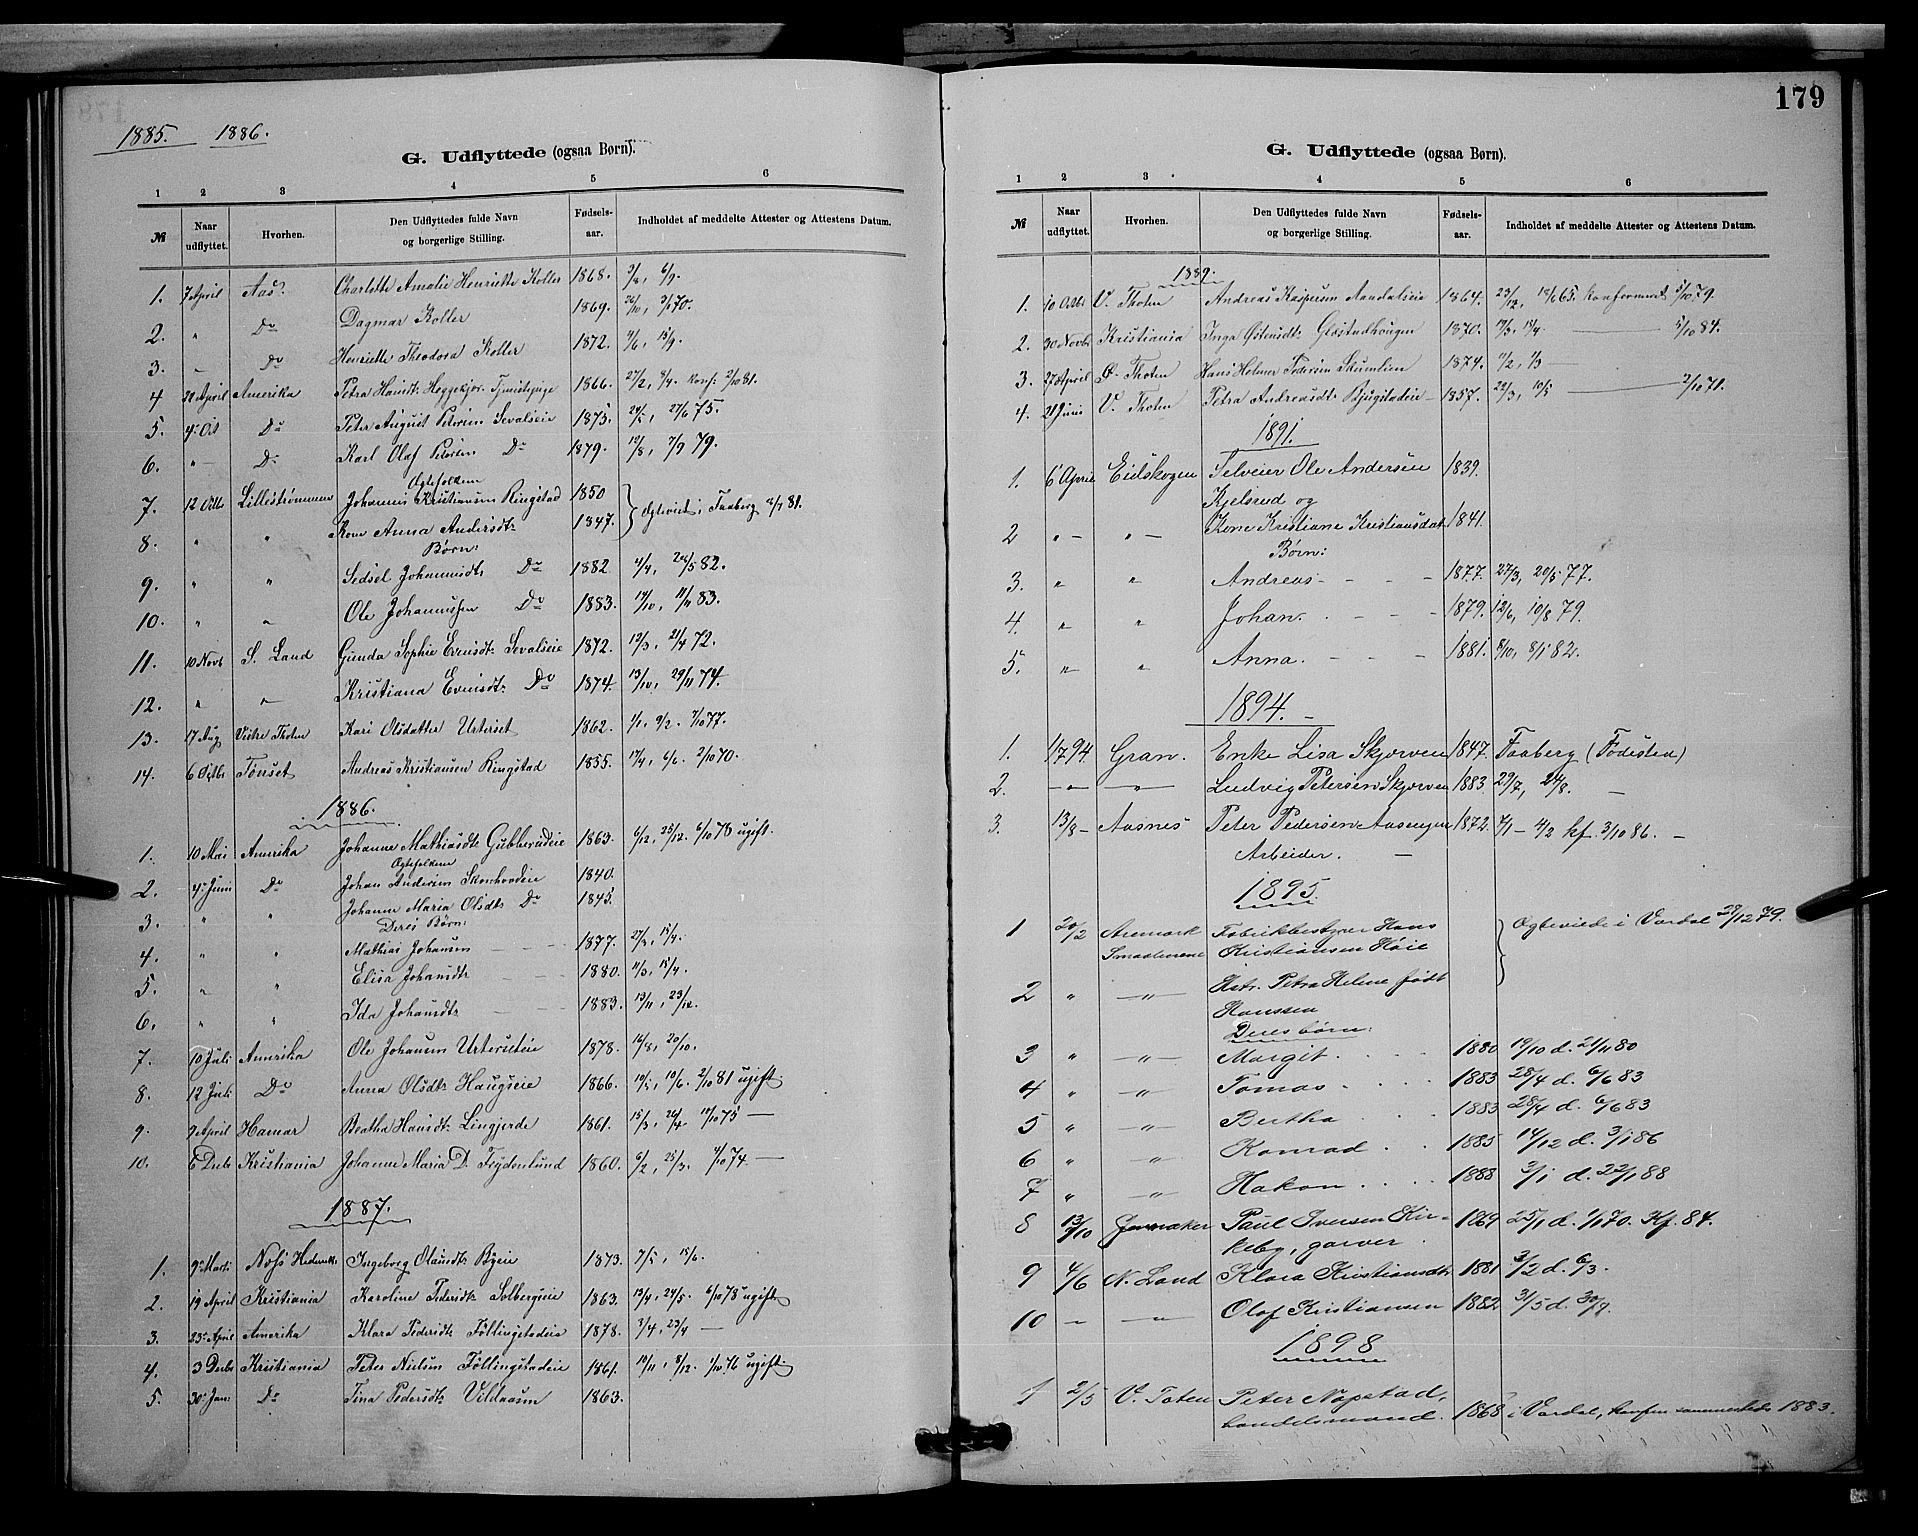 1885. 1886.
G. Udflyttede (ogsaa Børn).
1 2 3 4 5 6
№ Naar udflyttet. Hvorhen. Den Udflyttedes fulde Navn og borgerlige Stilling. Fødselsaar. Indholdet af meddelte Attester og Attestens Datum.
1. 7 April Aas. Charlotte Amalie Henriette Koller 1868.
2. " Do Dagmar Koller 1869. 26/10, 3/7 70.
3. " Do Henriette Theodora Koller 1872.
4 20 April Amerika Petra Hansdt. Heggekjor. Tjenestepige 1866. 27/2, 8/4. konf. 2/10 81.
5. 4. Oct Do Peter August Petersen Sevalseie 1875. 27/6 75.
6. " Do Karl Olaf Petersen Do 1879. 19/8, 7/9 79.
Ægtefolkene
7. 12 Octbr Lillestrømmen Johannes Kristiansen Ringstad 1850
8. " " Kone Anna Andersdt. 1847. Ægteviet i Faaberg 81.
Børn:
9. " " Sedsel Johannesdt. Do 1882. 4/4, 28/5 82.
10. " " Ole Johannessen Do 1883. 14/10, 11/11 83.
11. 10 Novb S. Land Gunda Sophie Evensdt. Sevalseie 1872. 12/3, 21/4 72.
12. " " Kristiana Evensdt. Do 1874. 13/10, 29/11 74.
13. 17 Aug Vestre Thoten Kari Olsdatter Urterset 1862. 1/1, 9/2. 7/10 77.
14. 6 Octbr Tønset Andreas Kristiansen Ringstad 1855. 17/4, 6/6. 2/10 70.
1886.
1. 10 Mai Amerika Johanne Mathiasdt. Gubberudeie 1863. 6/12, 25/12. 6/10 78 ugift.
Ægtefolkene
2. 4. Juni Do Johan Andersen Skonhovdeie 1840.
3. " " Johanne Maria Olsdt. Do 1845.
Deres Børn:
4. " " Mathias Johansen 1877. 27/3, 15/4.
5. " " Elisa Johansdt. 1880. 11/3, 15/4.
6. " " Ida Johansdt. 1883. 13/11, 23/12.
7. 10 Juli Amerika Ole Johansen Urterseteie 1878. 16/8, 20/10.
8. 12 Juli Do Anna Olsdt. Haugseie 1866. 10/5, 10/6. 2/10 81 ugift
9. 9 April Hamar Beatha Hansdt. Lingjerde 1861. 15/3, 26/4 10/10 75 —
10. 6 Decbr Kristiania Johanne Maria D. Frydenlund 1860. 6/2, 25/3. 4/10 74 —
1887.
1. 9. Marts Næs Hedemk. Ingeborg Olausdt. Byeie 1873. 7/5, 15/6.
2. 19 April Kristiania Karoline Pedersdt. Solbergeie 1863. 13/4, 24/5. 6/10 78 ugift
3. 23. April Amerika Klara Pedersdt. Føllingstadeie 1878. 3/4, 23/4 —
4. 3 Decbr Kristiania Peter Nielsen Føllingstadeie 1861. 10/11, 8/12. 1/10 76 ugift
5. 30. Jan. Do Tina Pedersdt. Vildaasen 1863.
179
G. Udflyttede (ogsaa Børn).
1 2 3 4 5 6
№ Naar udflyttet. Hvorhen. Den Udflyttedes fulde Navn og borgerlige Stilling. Fødselsaar. Indholdet af meddelte Attester og Attestens Datum.
1889.
1. 10 Octbr V. Thoten Andreas Kaspersen Aandalseie 1864. 23/12, 18/6 65. konfirmeret 5/10 79.
2. 30 Novbr Kristiania Inga Østensdt. Glæstadhaugen 1870. 17/3, 18/4 — 5/10 84.
3. 27 April Ø. Thoten Hans Helmer Pedersen Skumlien 1874. 11/2, 1/3 —
4. 21 Juni V. Thoten Petra Andreasdt. Bjugstadeie 1857. 22/3, 10/5 — 2/10 71.
1891.
1. 6 April Eidskogen Selveier Ole Andersen 1839.
Kjelsrud og
2 " " Kone Kristiane Kristiansdat 1841.
Børn:
3. " " Andreas 1877. 27/3, 20/5 77.
4. " " Johan. 1879. 12/6, 10/8 79.
5. " " Anna. 1881. 8/10, 8/1 82.
1894.
1. 1/7 94 Gran. Enke Lisa Skjerven 1847. Faaberg (Fødested)
2. — — Ludvig Petersen Skjerven 1883. 29/7, 24/8. —
3. 13/8 Aasnes Peter Pedersen Aasengen 1872. 7/1 — 4/2 kf. 3/10 86. —
Arbeider.
1895.
1 20/2 Aremark Fabrikbestyrer Hans Ægteviede i Vardal 28/12 79.
Smaalenene Kristiansen Høie
2 " " Hstr. Petra Helene født
Hanssen
Deres børn:
3 " " Margit 1880 19/10 d. 21/11 80
4 " " Tomas 1883 28/4 d. 6/6 83
5 " " Bertha 1883 28/4 d. 6/6 83
6 " " Konrad 1885 14/12 d. 3/1 86
7 " " Hakon 1888 3/1 d. 22/1 88
8 13/10 Jevnaker Paul Iversen Kir- 1869 25/1 d. 1/1 70. Kf. 84.
keby, garver
9 4/6 N. Land Klara Kristiansdt. 1881 3/2 d. 6/3.
10 " " Olaf Kristiansen 1882 31/5 d. 30/7.
1898
1 2/5 V. Toten Peter Nøpstad,
handelsmand. 1868 i Vardal, konfen sammesteds 1883.